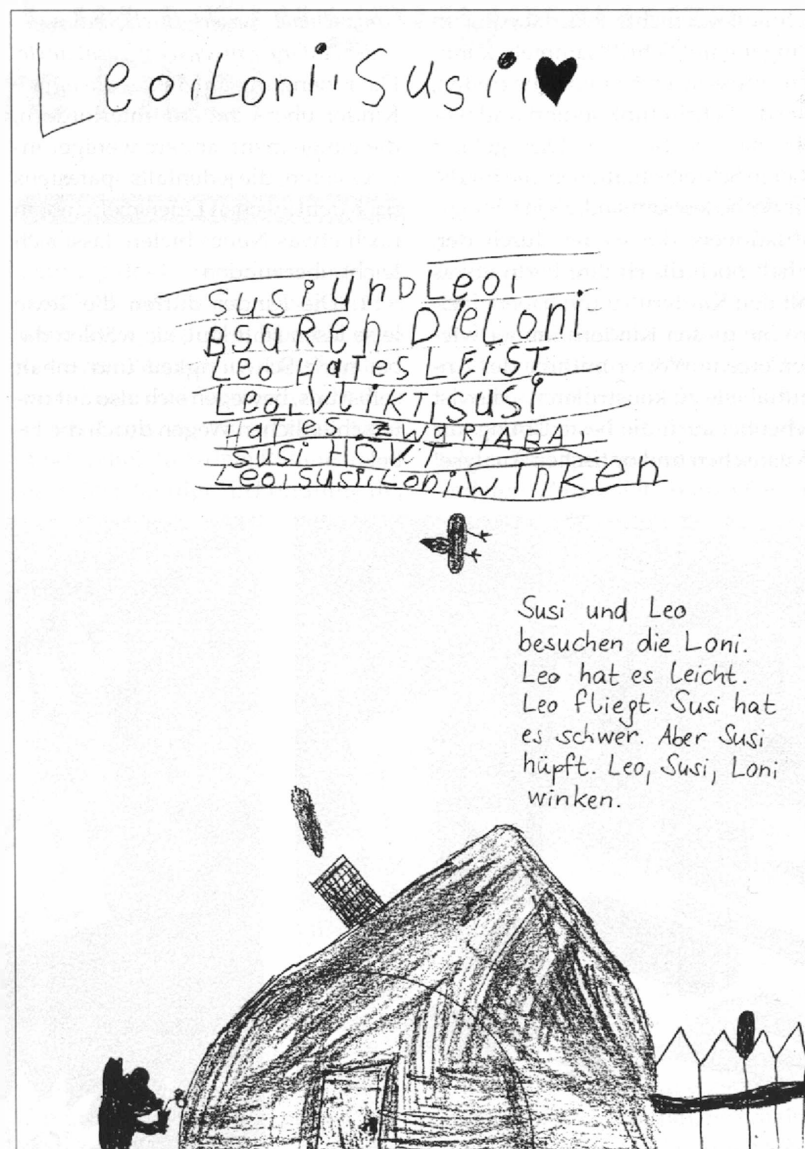 Leo, Loni, Susi, ♥
SUSi UND LeO,
BSUReN Die Loni
LeO HAt es LEST
Leo, vlikt, susi
HAt es ZWAR ABA,
susi HOVT
Leo, susi, Loni, winken
Susi und Leo
besuchen die Loni.
Leo hat es leicht.
Leo fliegt. Susi hat
es schwer. Aber Susi
hüpft. Leo, Susi, Loni
winken.